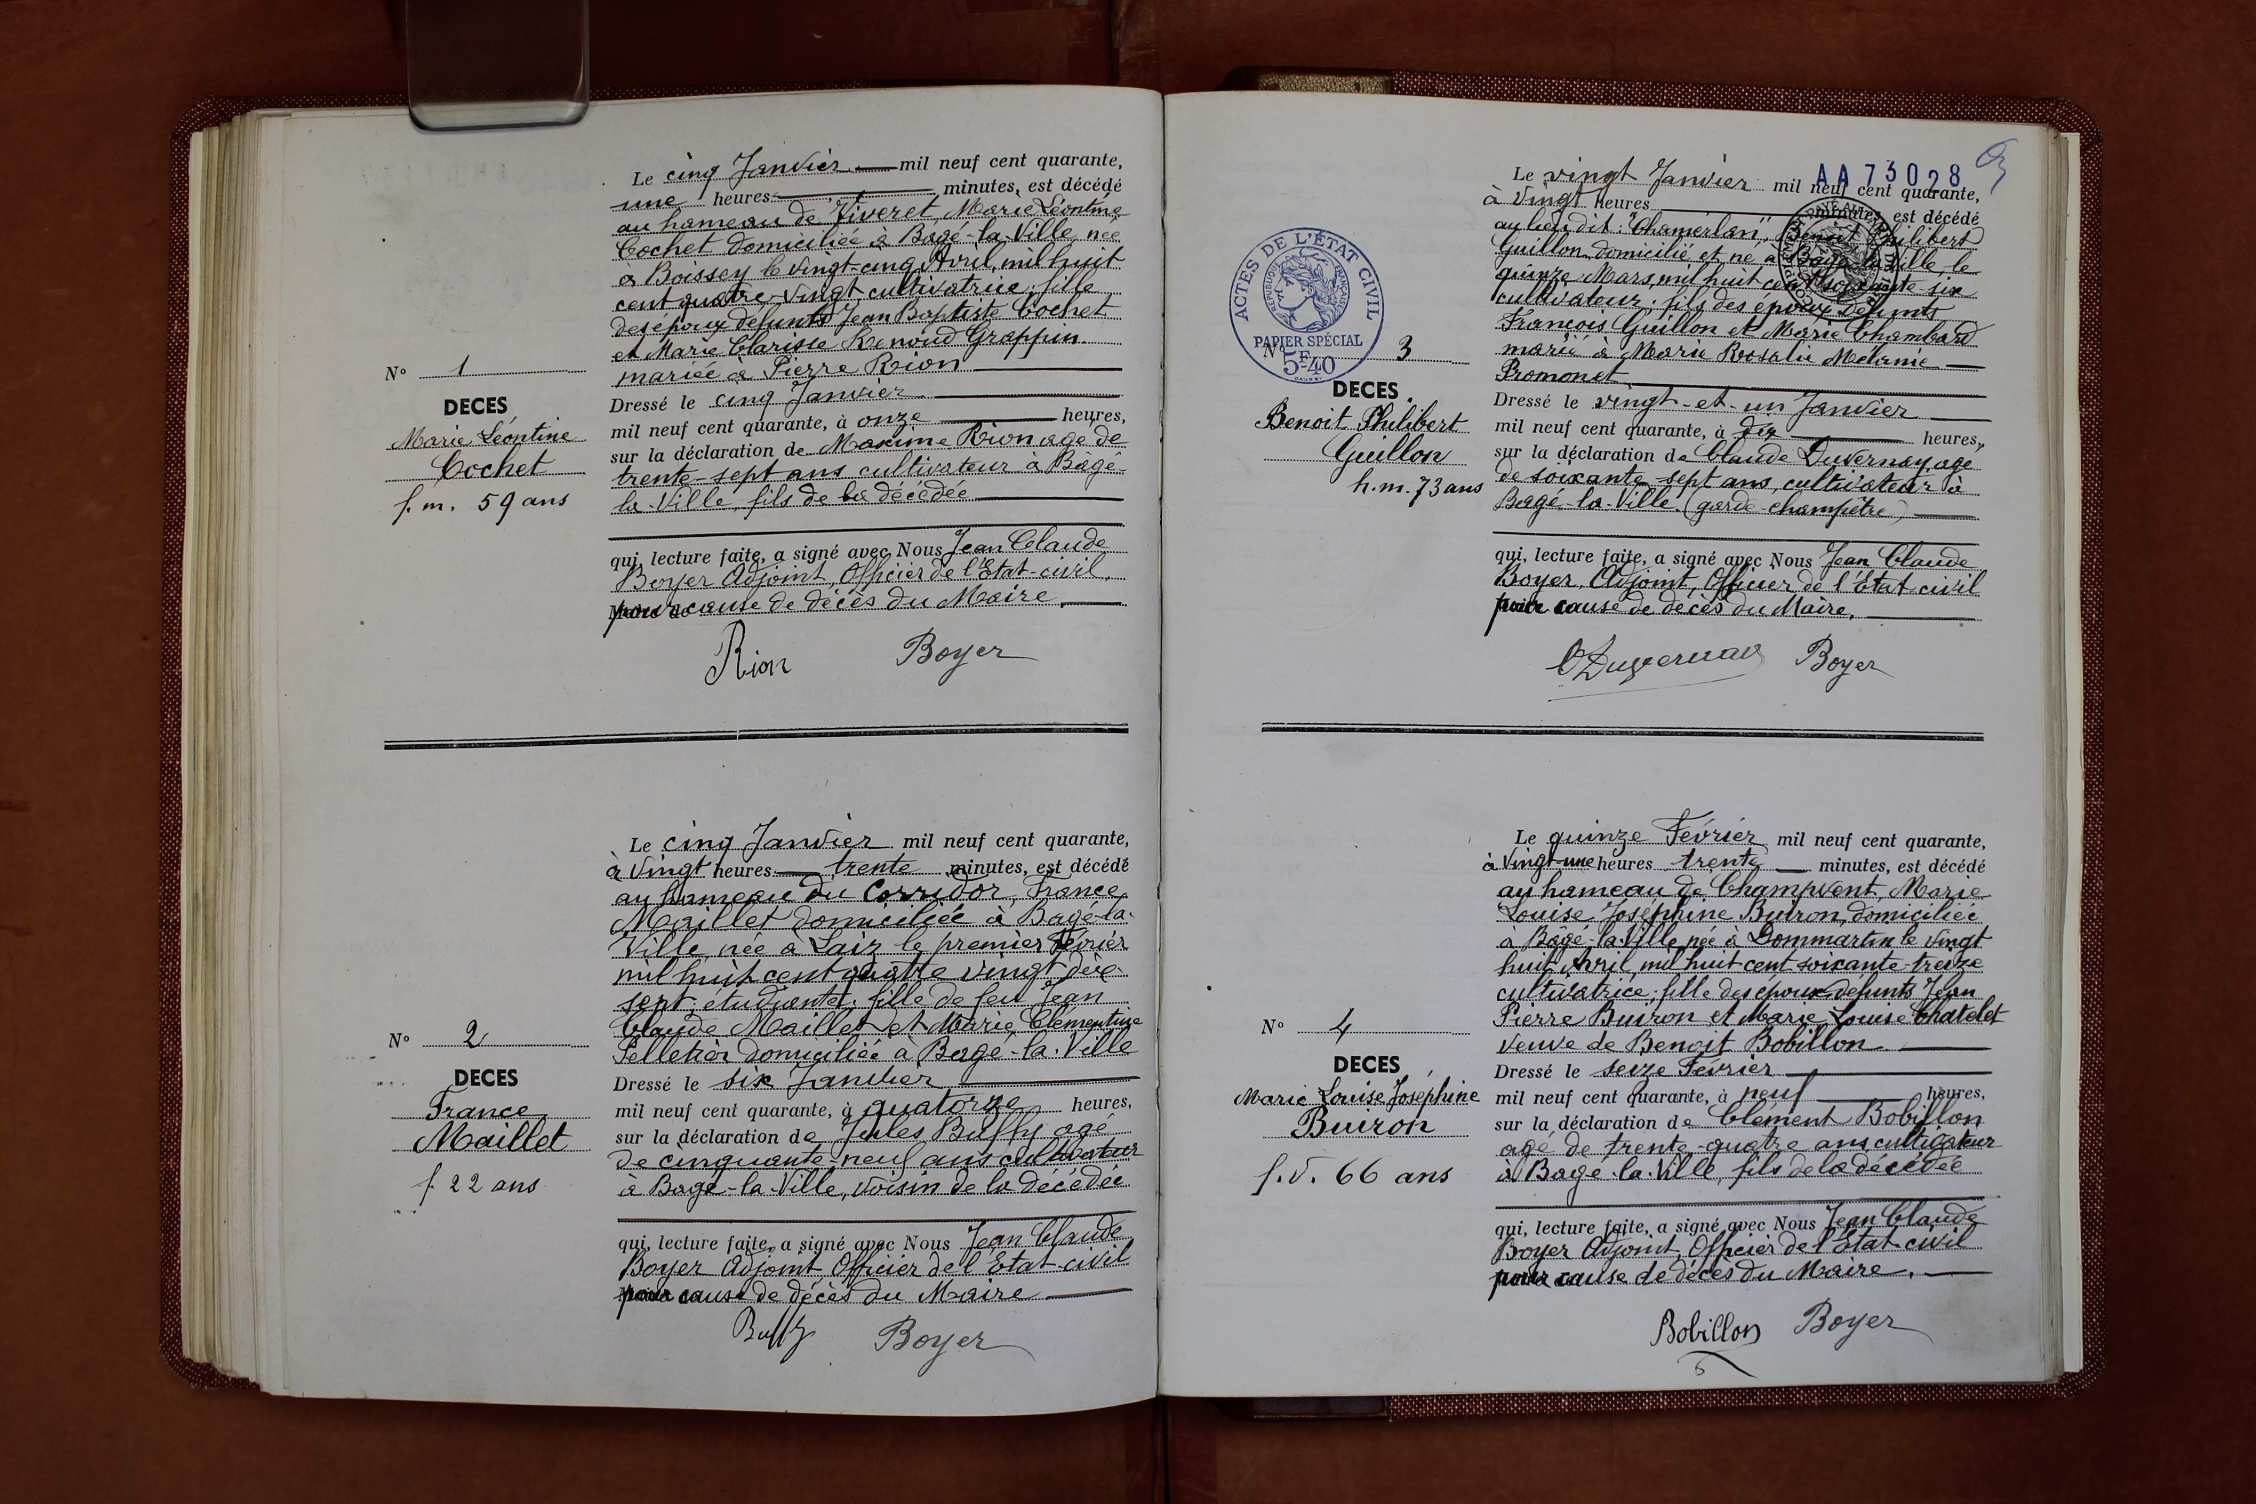 Le cinq Janvier mil neuf cent quarante,
une heures minutes, est décédé
au hameau de Viveret, Marie Léontine
Cochet domiciliée à Bagé-la-Ville née
à Boissey le vingt-cinq Avril, mil huit
cent quatre-vingt, cultivatrice; fille
des époux défunts Jean Baptiste Cochet
et Marie Clarisse Renoud Grappin
mariée à Pierre Rion
N° 1
DECES
Marie Léontine
Cochet
f. m. 59 ans
Dressé le cinq Janvier
mil neuf cent quarante, à onze heures,
sur la déclaration de Maxime Rion agé de
trente-sept ans cultivateur à Bâgé-
la-Ville, fils de la décédée
qui, lecture faite, a signé avec Nous Jean Claude
Boyer Adjoint, Officier de l'Etat-civil,
pour cause de décès du Maire.
Rion Boyer
Le cinq Janvier mil neuf cent quarante,
à vingt heures trente minutes, est décédé
au hameau du Corridor, France
Maillet domiciliée à Bagé-la-
Ville, née à Laiz le premier Février
mil huit cent quatre vingt dix-
sept, étudiante; fille de feu Jean
Claude Maillet et Marie Clémentine
Pelletier domiciliée à Bagé-la-Ville
N° 2
DECES
France
Maillet
f 22 ans
Dressé le six Janvier
mil neuf cent quarante, à quatorze heures,
sur la déclaration de Jules Buffy agé
de cinquante-neuf ans cultivateur
à Bagé-la-Ville, voisin de la décédée
qui, lecture faite, a signé avec Nous Jean Claude
Boyer Adjoint, Officier de l'Etat-civil
pour cause de décès du Maire
Buffy Boyer
AA 73028
Le vingt Janvier mil neuf cent quarante,
à vingt heures minutes, est décédé
au lieu dit: "Chamerlan", Benoit Philibert
Guillon domicilié et né à Bagé-la-Ville, le
quinze Mars, mil huit cent soixante-six
cultivateur; fils des époux défunts
François Guillon et Marie Chambard
marié à Marie Rosalie Mélanie
Promonet
ACTES DE L'ÉTAT CIVIL
RÉPUBLIQUE FRANÇAISE
PAPIER SPÉCIAL
5F40
N° 3
DECES
Benoit Philibert
Guillon
h. m. 73 ans
Dressé le vingt-et-un Janvier
mil neuf cent quarante, à dix heures,
sur la déclaration de Claude Duvernay, agé
de soixante-sept ans, cultivateur à
Bagé-la-Ville. (garde-champêtre)
qui, lecture faite, a signé avec Nous Jean Claude
Boyer, Adjoint, Officier de l'Etat-civil
pour cause de décès du Maire.
C Duvernay Boyer
Le quinze Février mil neuf cent quarante,
à vingt-une heures trente minutes, est décédé
au hameau de Champvent, Marie
Louise Joséphine Buiron, domiciliée
à Bâgé-la-Ville née à Dommartin le vingt
huit Avril, mil huit cent soixante-treize
cultivatrice; fille des époux défunts Jean
Pierre Buiron et Marie Louise Chatelet
veuve de Benoit Bobillon
N° 4
DECES
Marie Louise Joséphine
Buiron
f. v. 66 ans
Dressé le seize Février
mil neuf cent quarante, à neuf heures,
sur la déclaration de Clément Bobillon
agé de trente-quatre ans cultivateur
à Bage-la-Ville, fils de la décédée
qui, lecture faite, a signé avec Nous Jean Claude
Boyer Adjoint, Officier de l'Etat-civil
pour cause de décès du Maire.
Bobillon Boyer